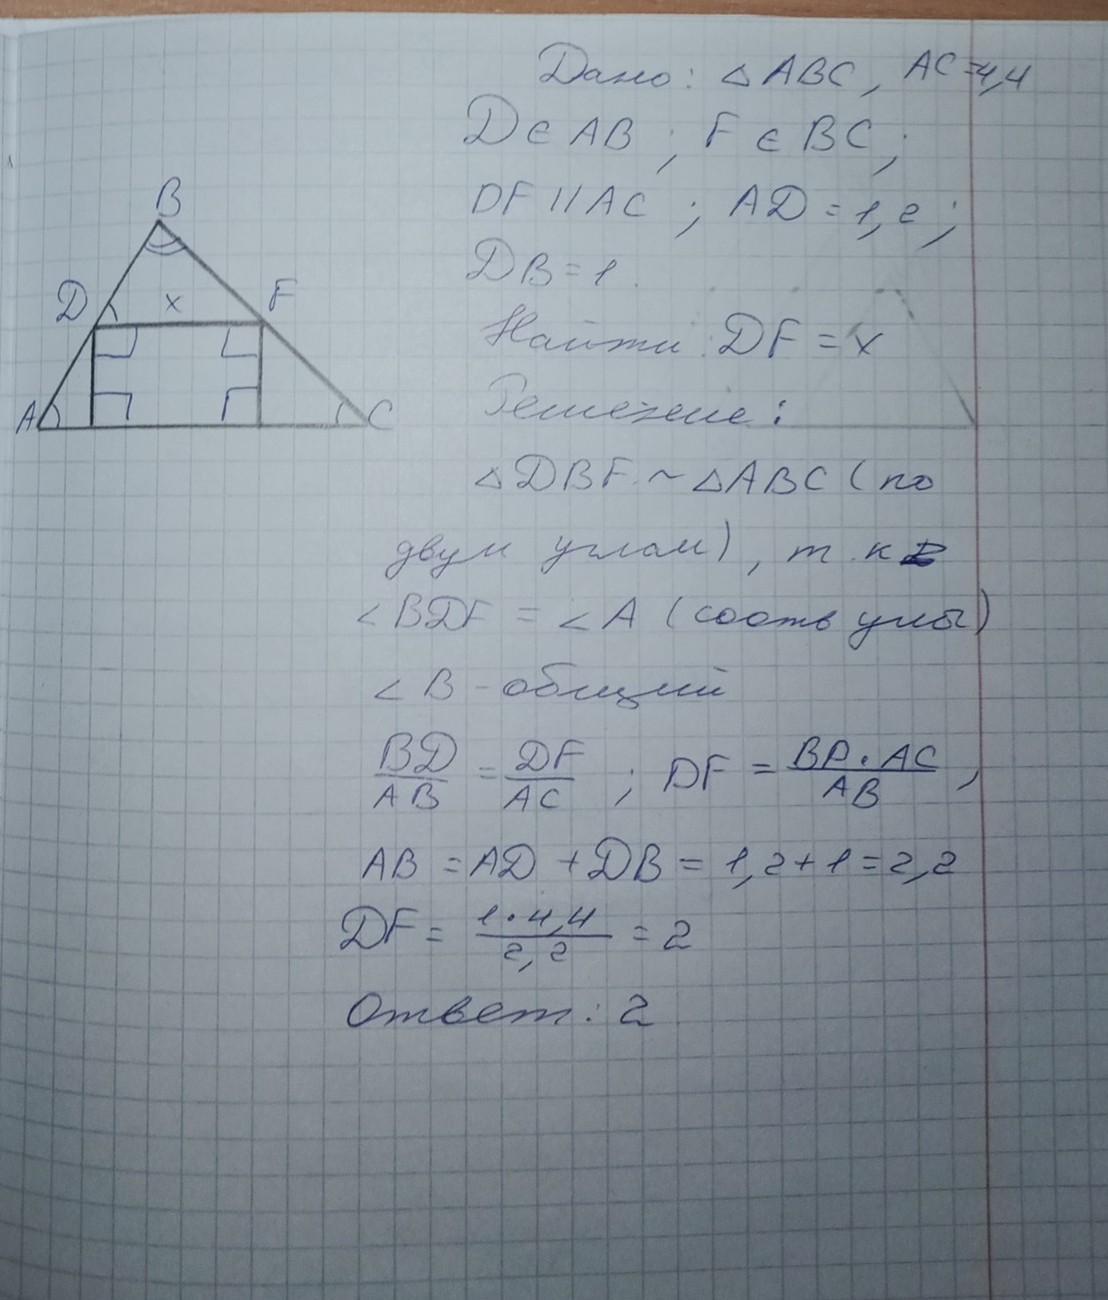 Дано: △ABC, AC=4,4
D∈AB; F∈BC;
DF∥AC; AD=1,2;
DB=1.
Найти: DF=x
Решение:
△DBF ~ △ABC (по
двум углам), т.к
∠BDF = ∠A (соотв углы)
∠B - общий
BD/AB = DF/AC; DF = BD·AC/AB,
AB = AD + DB = 1,2+1=2,2
DF = 1·4,4/2,2 = 2
Ответ: 2
B
D x F
A C